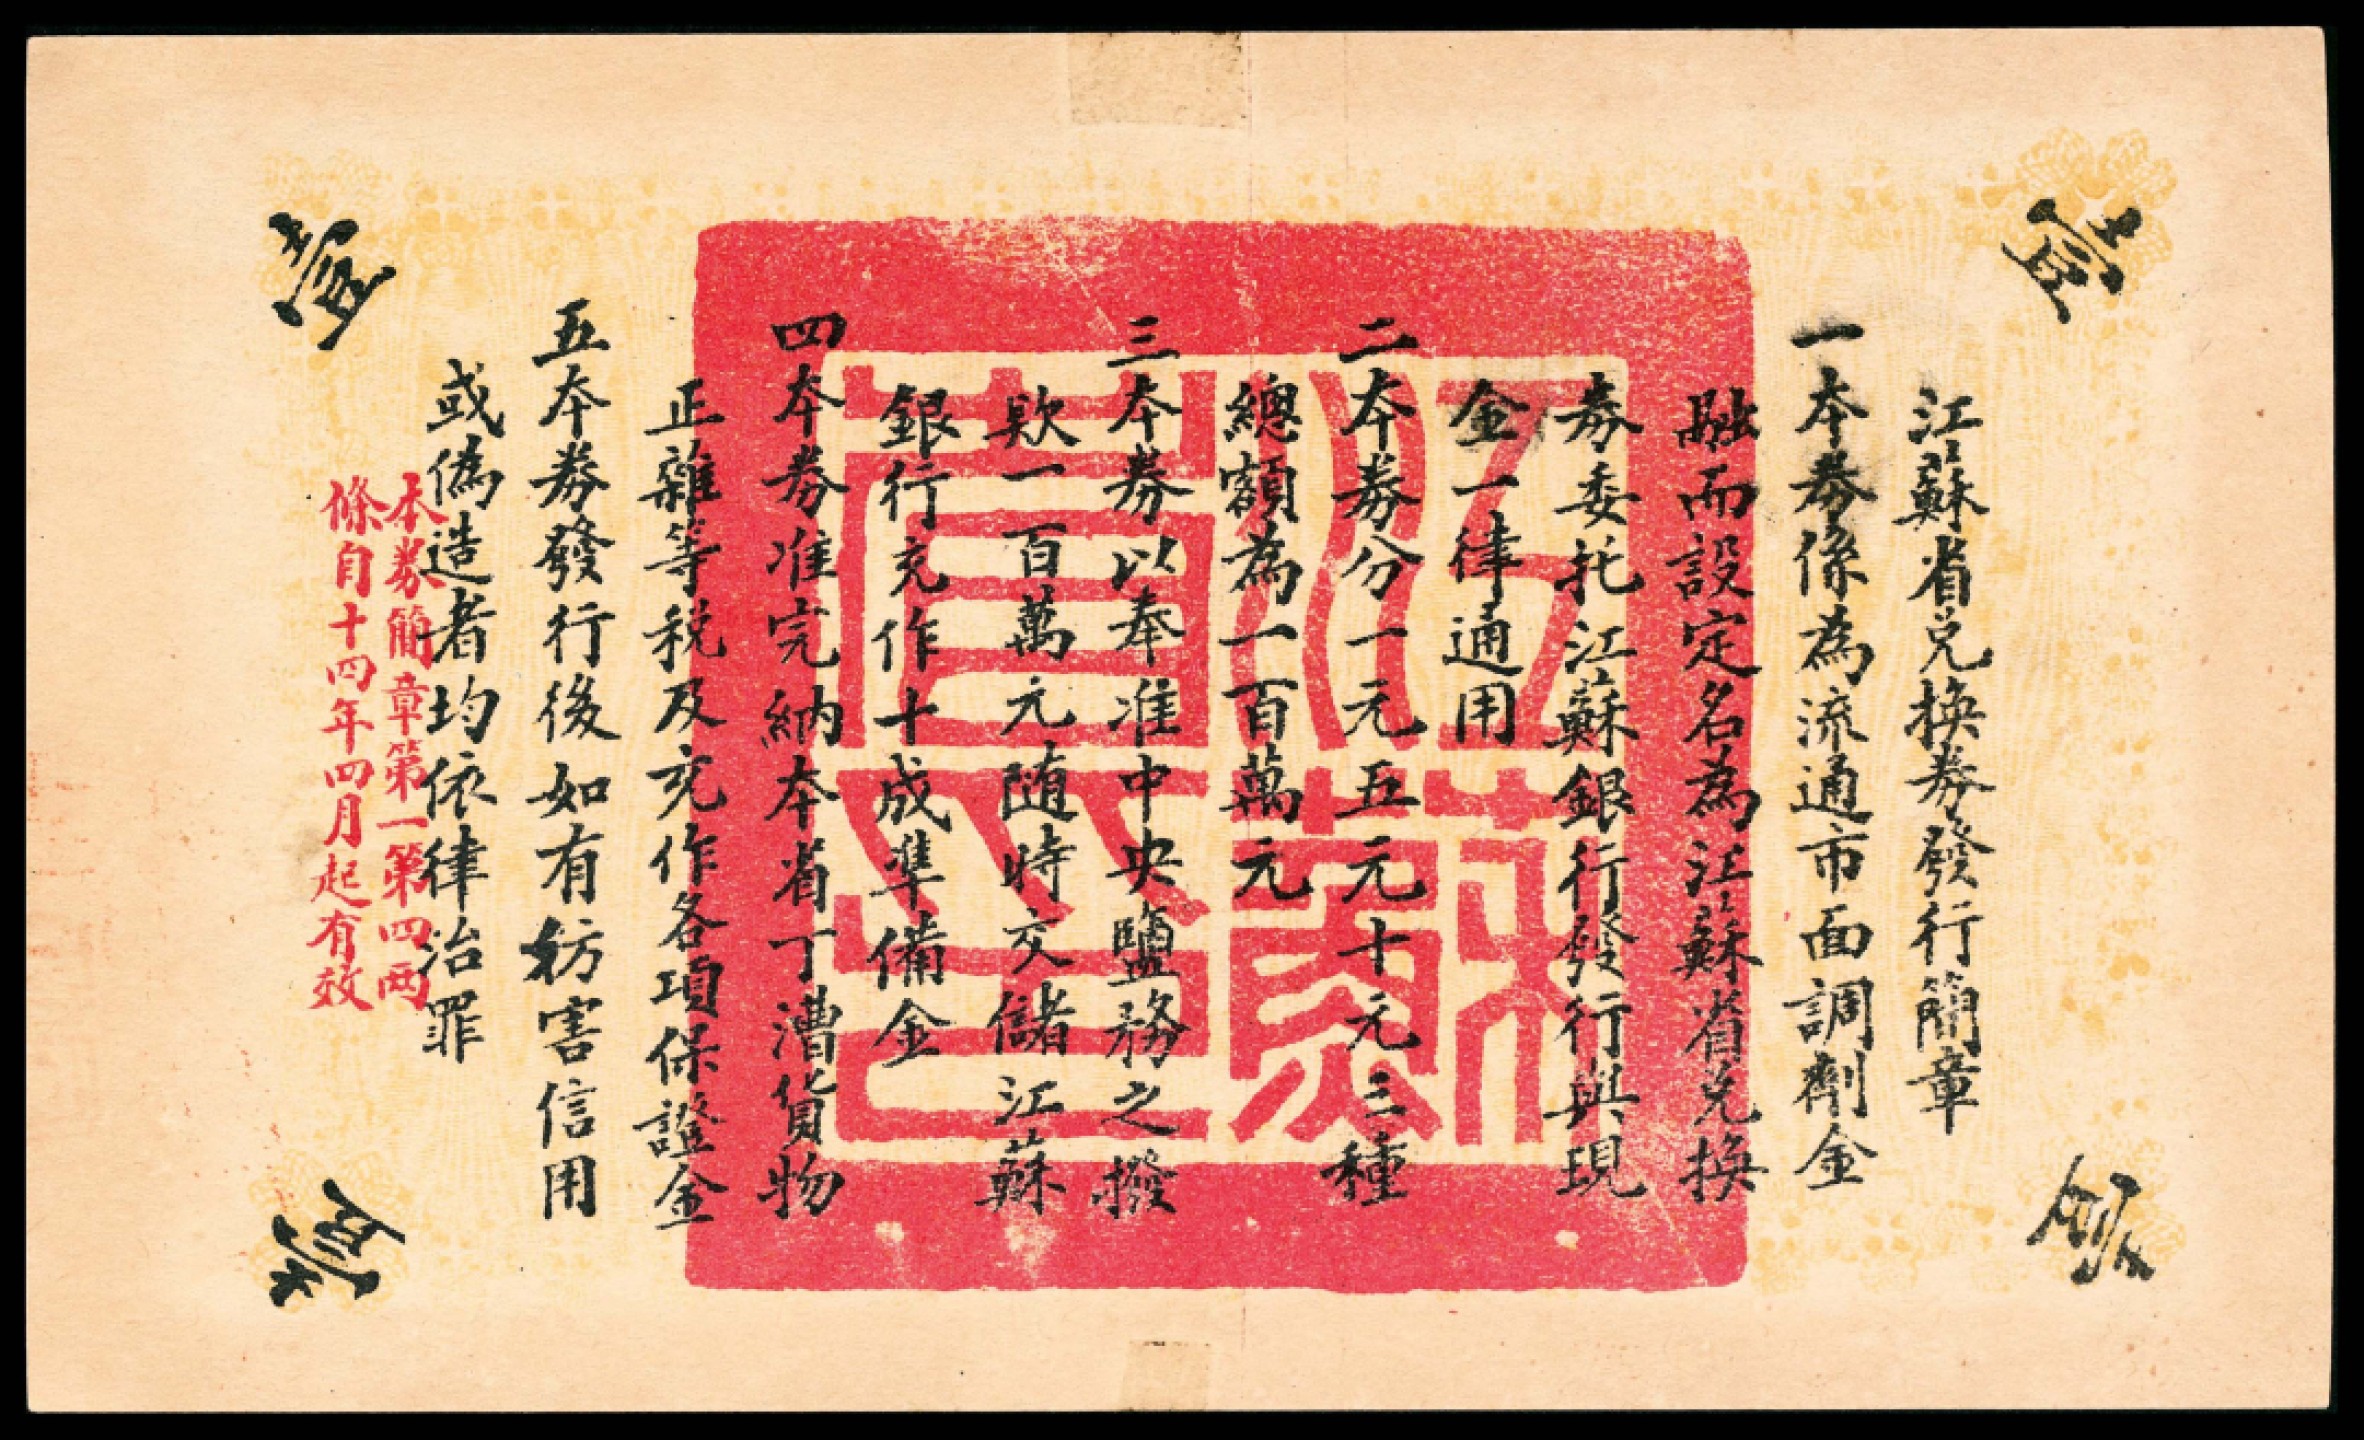 江蘇省兑換券發行簡章
一本券係為流通市面調劑金
融而設定名為江蘇省兑換
券委托江蘇銀行發行與現
金一律通用
二本券分一元五元十元三種
總額為一百萬元
三本券以奉准中央鹽務之撥
欵一百萬元随時交儲江蘇
銀行充作十成準備金
四本券准完納本省丁漕貨物
正雜等稅及充作各項保證金
五本券發行後如有妨害信用
或偽造者均依律治罪
本券簡章第一第四两
條自十四年四月起有效
壹
壹
壹
壹
江蘇
省印